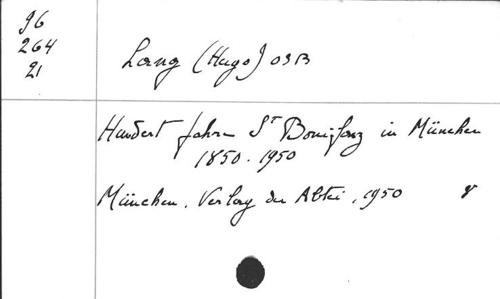 96
264
21
Lang (Hugo) OSB
Hundert Jahre St Bonifaz in München
1850-1950
München, Verlag der Abtei, 1950